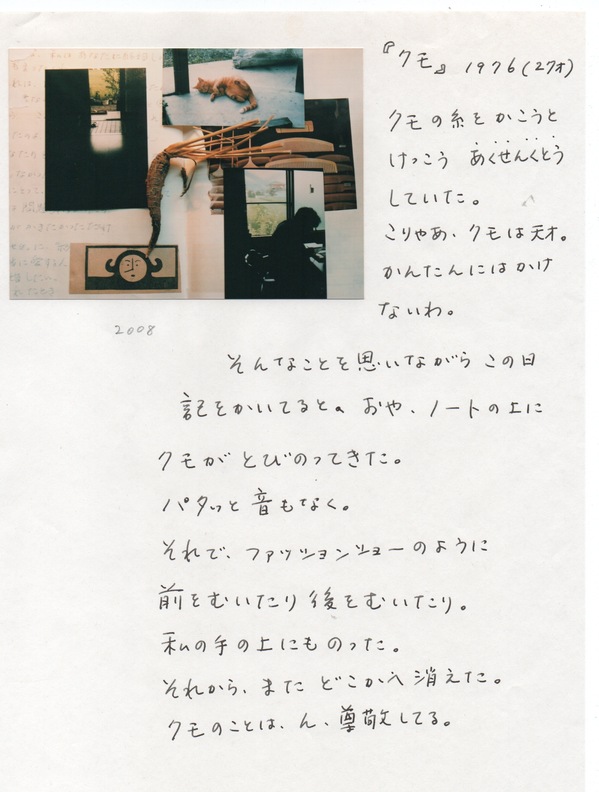 『クモ』 1976(27才)
クモの糸をかこうと
けっこう あくせんくとう
していた。
こりゃあ、クモは天才。
かんたんにはかけ
ないわ。
2008
そんなことを思いながら この日
記をかいてると。 おや、ノートの上に
クモが とびのってきた。
パタッと 音もなく。
それで、ファッションショーのように
前をむいたり 後をむいたり。
私の手の上にものった。
それから、また どこかへ 消えた。
クモのことは、ん、尊敬してる。